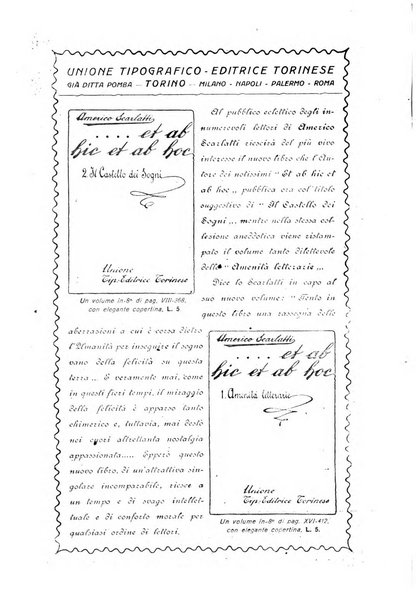 UNIONE TIPOGRAFICO - EDITRICE TORINESE
GIÀ DITTA POMBA — TORINO — MILANO - NAPOLI - PALERMO - ROMA
Americo Scarlatti
.... et ab
hic et ab hoc
2. Il Castello dei Sogni
Unione
Tip.-Editrice Torinese
Un volume in-8º di pag. VIII-368,
con elegante copertina, L. 5.
Al pubblico eclettico degli in-
numerevoli lettori di Americo
Scarlatti riescirà del più vivo
interesse il nuovo libro che l'Au-
tore dei notissimi " Et ab hic et
ab hoc „ pubblica ora col titolo
suggestivo di " Il Castello dei
Sogni „, mentre nella stessa col-
lezione aneddotica viene ristam-
pato il volume tanto dilettevole
delle " Amenità letterarie „.
Dice lo Scarlatti in capo al
suo nuovo volume: "Tento in
questo libro una rassegna delle
aberrazioni a cui è corsa dietro
l'Umanità per inseguire il sogno
vano della felicità su questa
terra... E veramente mai, come
in questi fieri tempi, il miraggio
della felicità è apparso tanto
chimerico e, tuttavia, mai destò
nei cuori altrettanta nostalgia
appassionata.... Epperò questo
nuovo libro, di un'attrattiva sin-
golare incomparabile, riesce a
un tempo e di svago intellet-
tuale e di conforto morale per
qualsiasi ordine di lettori.
Americo Scarlatti
.... et ab
hic et ab hoc
1. Amenità letterarie
Unione
Tip.-Editrice Torinese
Un volume in-8º di pag. XVI-412,
con elegante copertina, L. 5.